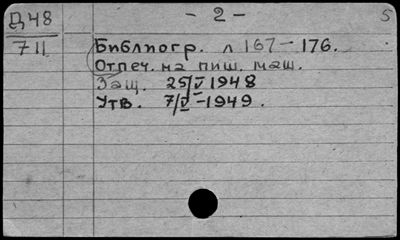 Д48 - 2 - 5
711
Библиогр. л 167-176.
Отпеч. на пиш. маш.
Защ. 25/V 1948
Утв. 7/V-1949.